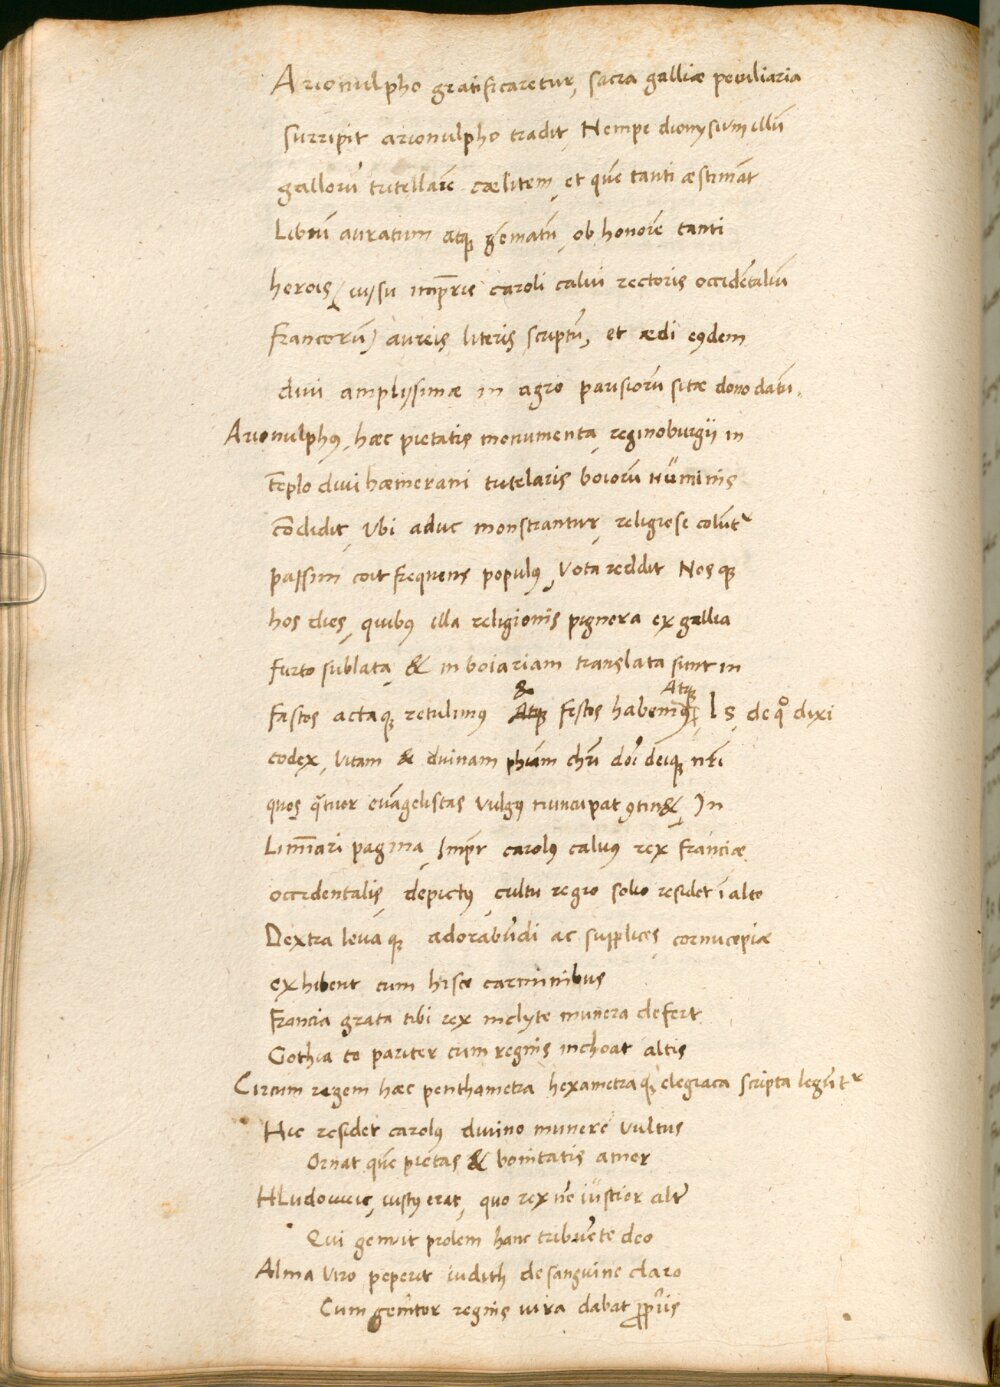 Arionulpho gratificaretur, sacra galliæ peculiaria
surripit arionulpho tradit, Nempe dionysium illū
gallorū tutellarē cælitem, et quē tanti æstimāt
Librū auratum atq; gēmatū, ob honorē tanti
herois, (iussu imp̄ris caroli calui rectoris occidētaliū
francorū) aureis literis scriptū, et ædi eꝰdem
diui amplissimæ in agro parisiorū sitæ dono datū.
Arionulphꝰ, hæc pietatis monumenta, reginoburgii in
tēplo diui hæmerani tutelaris boiorū numinis
cōdidit, Vbi aduc monstrantur, religiose colūtr
passim coit frequens populꝰ, Vota reddit Nos q;
hos dies, quibꝰ illa religionis pignora ex gallia
furto sublata, & in boiariam translata sunt in
fastos actaq; retulimꝰ & festos habemꝰ, Atq; Is, de qͦ dixi
codex, Vitam & diuinam phiam chri dn̄i deiq; nr̄i
quos q̄tuor euāgelistas Vulgꝰ nuncupat ꝯtin&, In
Limīari pagina, Imp̄r carolꝰ caluus rex franciæ
occidentalis, depictꝰ, cultu regio solio residet ī alto
Dextra leuaq; adorabūdi ac supplices, cornucopiæ
exhibent cum hisce carminibus
Francia grata tibi rex inclyte munera defert
Gothia te pariter cum regnis inchoat altis
Circum regem hæc penthametra hexametraq; elegiaca scripta legūtr
Hic residet carolꝰ diuino munere Vultus
Ornat quē pietas & bonitatis amor
HLudouuic, iustꝰ erat, quo rex nō iustior altr̄
Qui genuit prolem hanc tribuēte deo
Alma Viro peperit iudith de sanguine claro
Cum genitor regnis iura dabat ꝓpriis